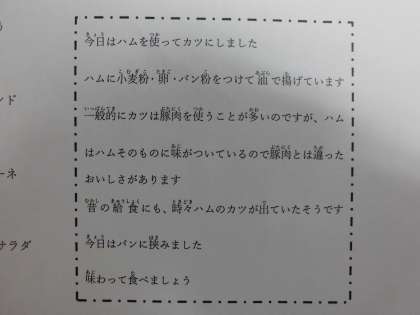 今日はハムを使ってカツにしました
ハムに小麦粉・卵・パン粉をつけて油で揚げています
一般的にカツは豚肉を使うことが多いのですが、ハム
はハムそのものに味がついているので豚肉とは違った
おいしさがあります
昔の給食にも、時々ハムのカツが出ていたそうです
今日はパンに挟みました
味わって食べましょう
ンド
ーネ
サラダ